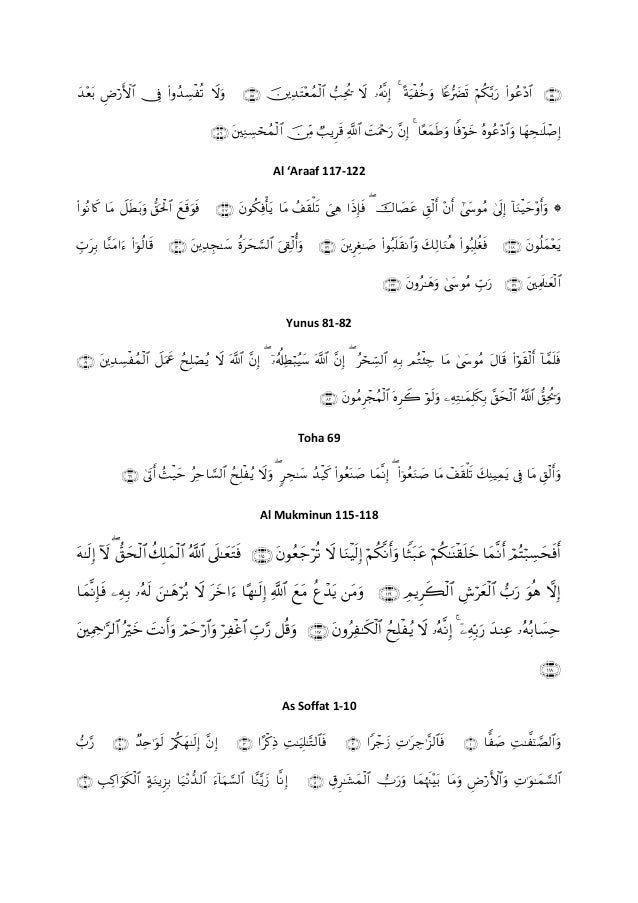 ﴿٥٤﴾ ٱدْعُوا۟ رَبَّكُمْ تَضَرُّعًا وَخُفْيَةً ۚ إِنَّهُۥ لَا يُحِبُّ ٱلْمُعْتَدِينَ ﴿٥٥﴾ وَلَا تُفْسِدُوا۟ فِى ٱلْأَرْضِ بَعْدَ
إِصْلَٰحِهَا وَٱدْعُوهُ خَوْفًا وَطَمَعًا ۚ إِنَّ رَحْمَتَ ٱللَّهِ قَرِيبٌ مِّنَ ٱلْمُحْسِنِينَ ﴿٥٦﴾
Al ‘Araaf 117-122
۞ وَأَوْحَيْنَآ إِلَىٰ مُوسَىٰٓ أَنْ أَلْقِ عَصَاكَ ۖ فَإِذَا هِىَ تَلْقَفُ مَا يَأْفِكُونَ ﴿١١٧﴾ فَوَقَعَ ٱلْحَقُّ وَبَطَلَ مَا كَانُوا۟
يَعْمَلُونَ ﴿١١٨﴾ فَغُلِبُوا۟ هُنَالِكَ وَٱنقَلَبُوا۟ صَٰغِرِينَ ﴿١١٩﴾ وَأُلْقِىَ ٱلسَّحَرَةُ سَٰجِدِينَ ﴿١٢٠﴾ قَالُوٓا۟ ءَامَنَّا بِرَبِّ
ٱلْعَٰلَمِينَ ﴿١٢١﴾ رَبِّ مُوسَىٰ وَهَٰرُونَ ﴿١٢٢﴾
Yunus 81-82
فَلَمَّآ أَلْقَوْا۟ قَالَ مُوسَىٰ مَا جِئْتُم بِهِ ٱلسِّحْرُ ۖ إِنَّ ٱللَّهَ سَيُبْطِلُهُۥٓ ۖ إِنَّ ٱللَّهَ لَا يُصْلِحُ عَمَلَ ٱلْمُفْسِدِينَ ﴿٨١﴾
وَيُحِقُّ ٱللَّهُ ٱلْحَقَّ بِكَلِمَٰتِهِۦ وَلَوْ كَرِهَ ٱلْمُجْرِمُونَ ﴿٨٢﴾
Toha 69
وَأَلْقِ مَا فِى يَمِينِكَ تَلْقَفْ مَا صَنَعُوٓا۟ ۖ إِنَّمَا صَنَعُوا۟ كَيْدُ سَٰحِرٍ ۖ وَلَا يُفْلِحُ ٱلسَّاحِرُ حَيْثُ أَتَىٰ ﴿٦٩﴾
Al Mukminun 115-118
أَفَحَسِبْتُمْ أَنَّمَا خَلَقْنَٰكُمْ عَبَثًا وَأَنَّكُمْ إِلَيْنَا لَا تُرْجَعُونَ ﴿١١٥﴾ فَتَعَٰلَى ٱللَّهُ ٱلْمَلِكُ ٱلْحَقُّ ۖ لَآ إِلَٰهَ
إِلَّا هُوَ رَبُّ ٱلْعَرْشِ ٱلْكَرِيمِ ﴿١١٦﴾ وَمَن يَدْعُ مَعَ ٱللَّهِ إِلَٰهًا ءَاخَرَ لَا بُرْهَٰنَ لَهُۥ بِهِۦ فَإِنَّمَا
حِسَابُهُۥ عِندَ رَبِّهِۦٓ ۚ إِنَّهُۥ لَا يُفْلِحُ ٱلْكَٰفِرُونَ ﴿١١٧﴾ وَقُل رَّبِّ ٱغْفِرْ وَٱرْحَمْ وَأَنتَ خَيْرُ ٱلرَّٰحِمِينَ
﴿١١٨﴾
As Soffat 1-10
وَٱلصَّٰٓفَّٰتِ صَفًّا ﴿١﴾ فَٱلزَّٰجِرَٰتِ زَجْرًا ﴿٢﴾ فَٱلتَّٰلِيَٰتِ ذِكْرًا ﴿٣﴾ إِنَّ إِلَٰهَكُمْ لَوَٰحِدٌ ﴿٤﴾ رَّبُّ
ٱلسَّمَٰوَٰتِ وَٱلْأَرْضِ وَمَا بَيْنَهُمَا وَرَبُّ ٱلْمَشَٰرِقِ ﴿٥﴾ إِنَّا زَيَّنَّا ٱلسَّمَآءَ ٱلدُّنْيَا بِزِينَةٍ ٱلْكَوَاكِبِ ﴿٦﴾